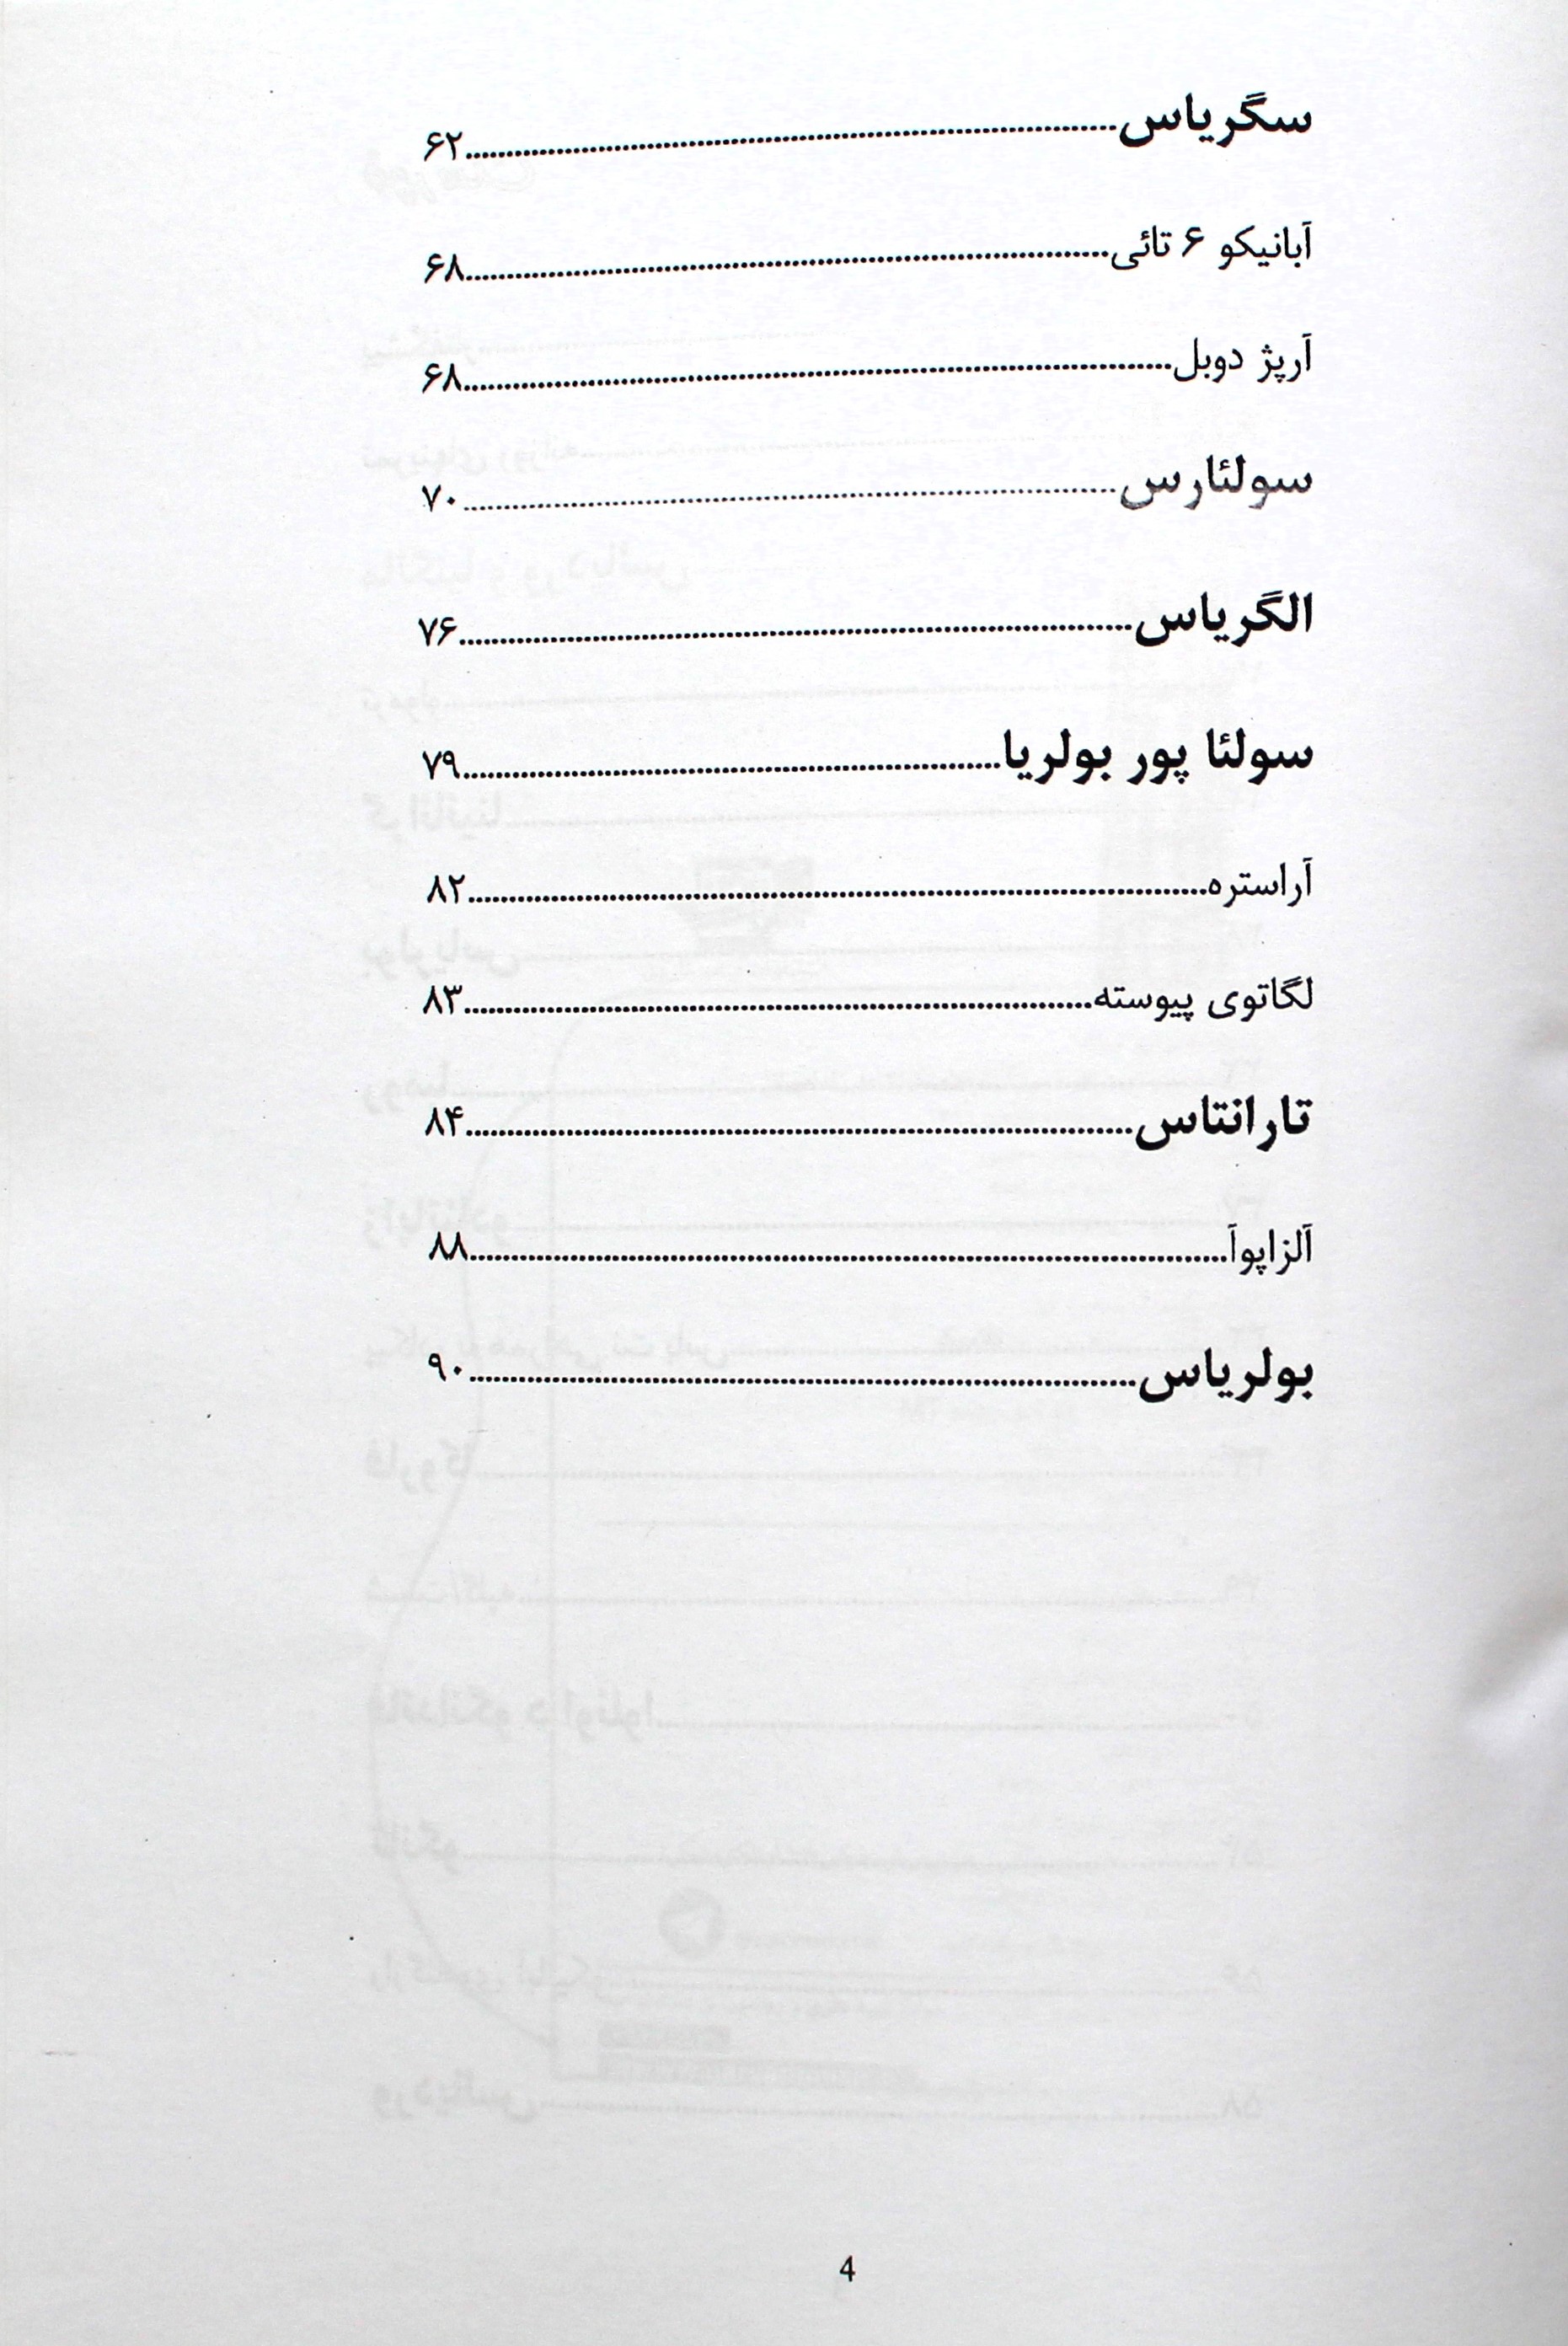 سگریاس................۶۲
آبانیکو ۶ تائی................۶۸
آرپژ دوبل................۶۸
سولئارس................۷۰
الگریاس................۷۶
سولئا پور بولریا................۷۹
آراستره................۸۲
لگاتوی پیوسته................۸۳
تارانتاس................۸۴
آلزاپوآ................۸۸
بولریاس................۹۰
4